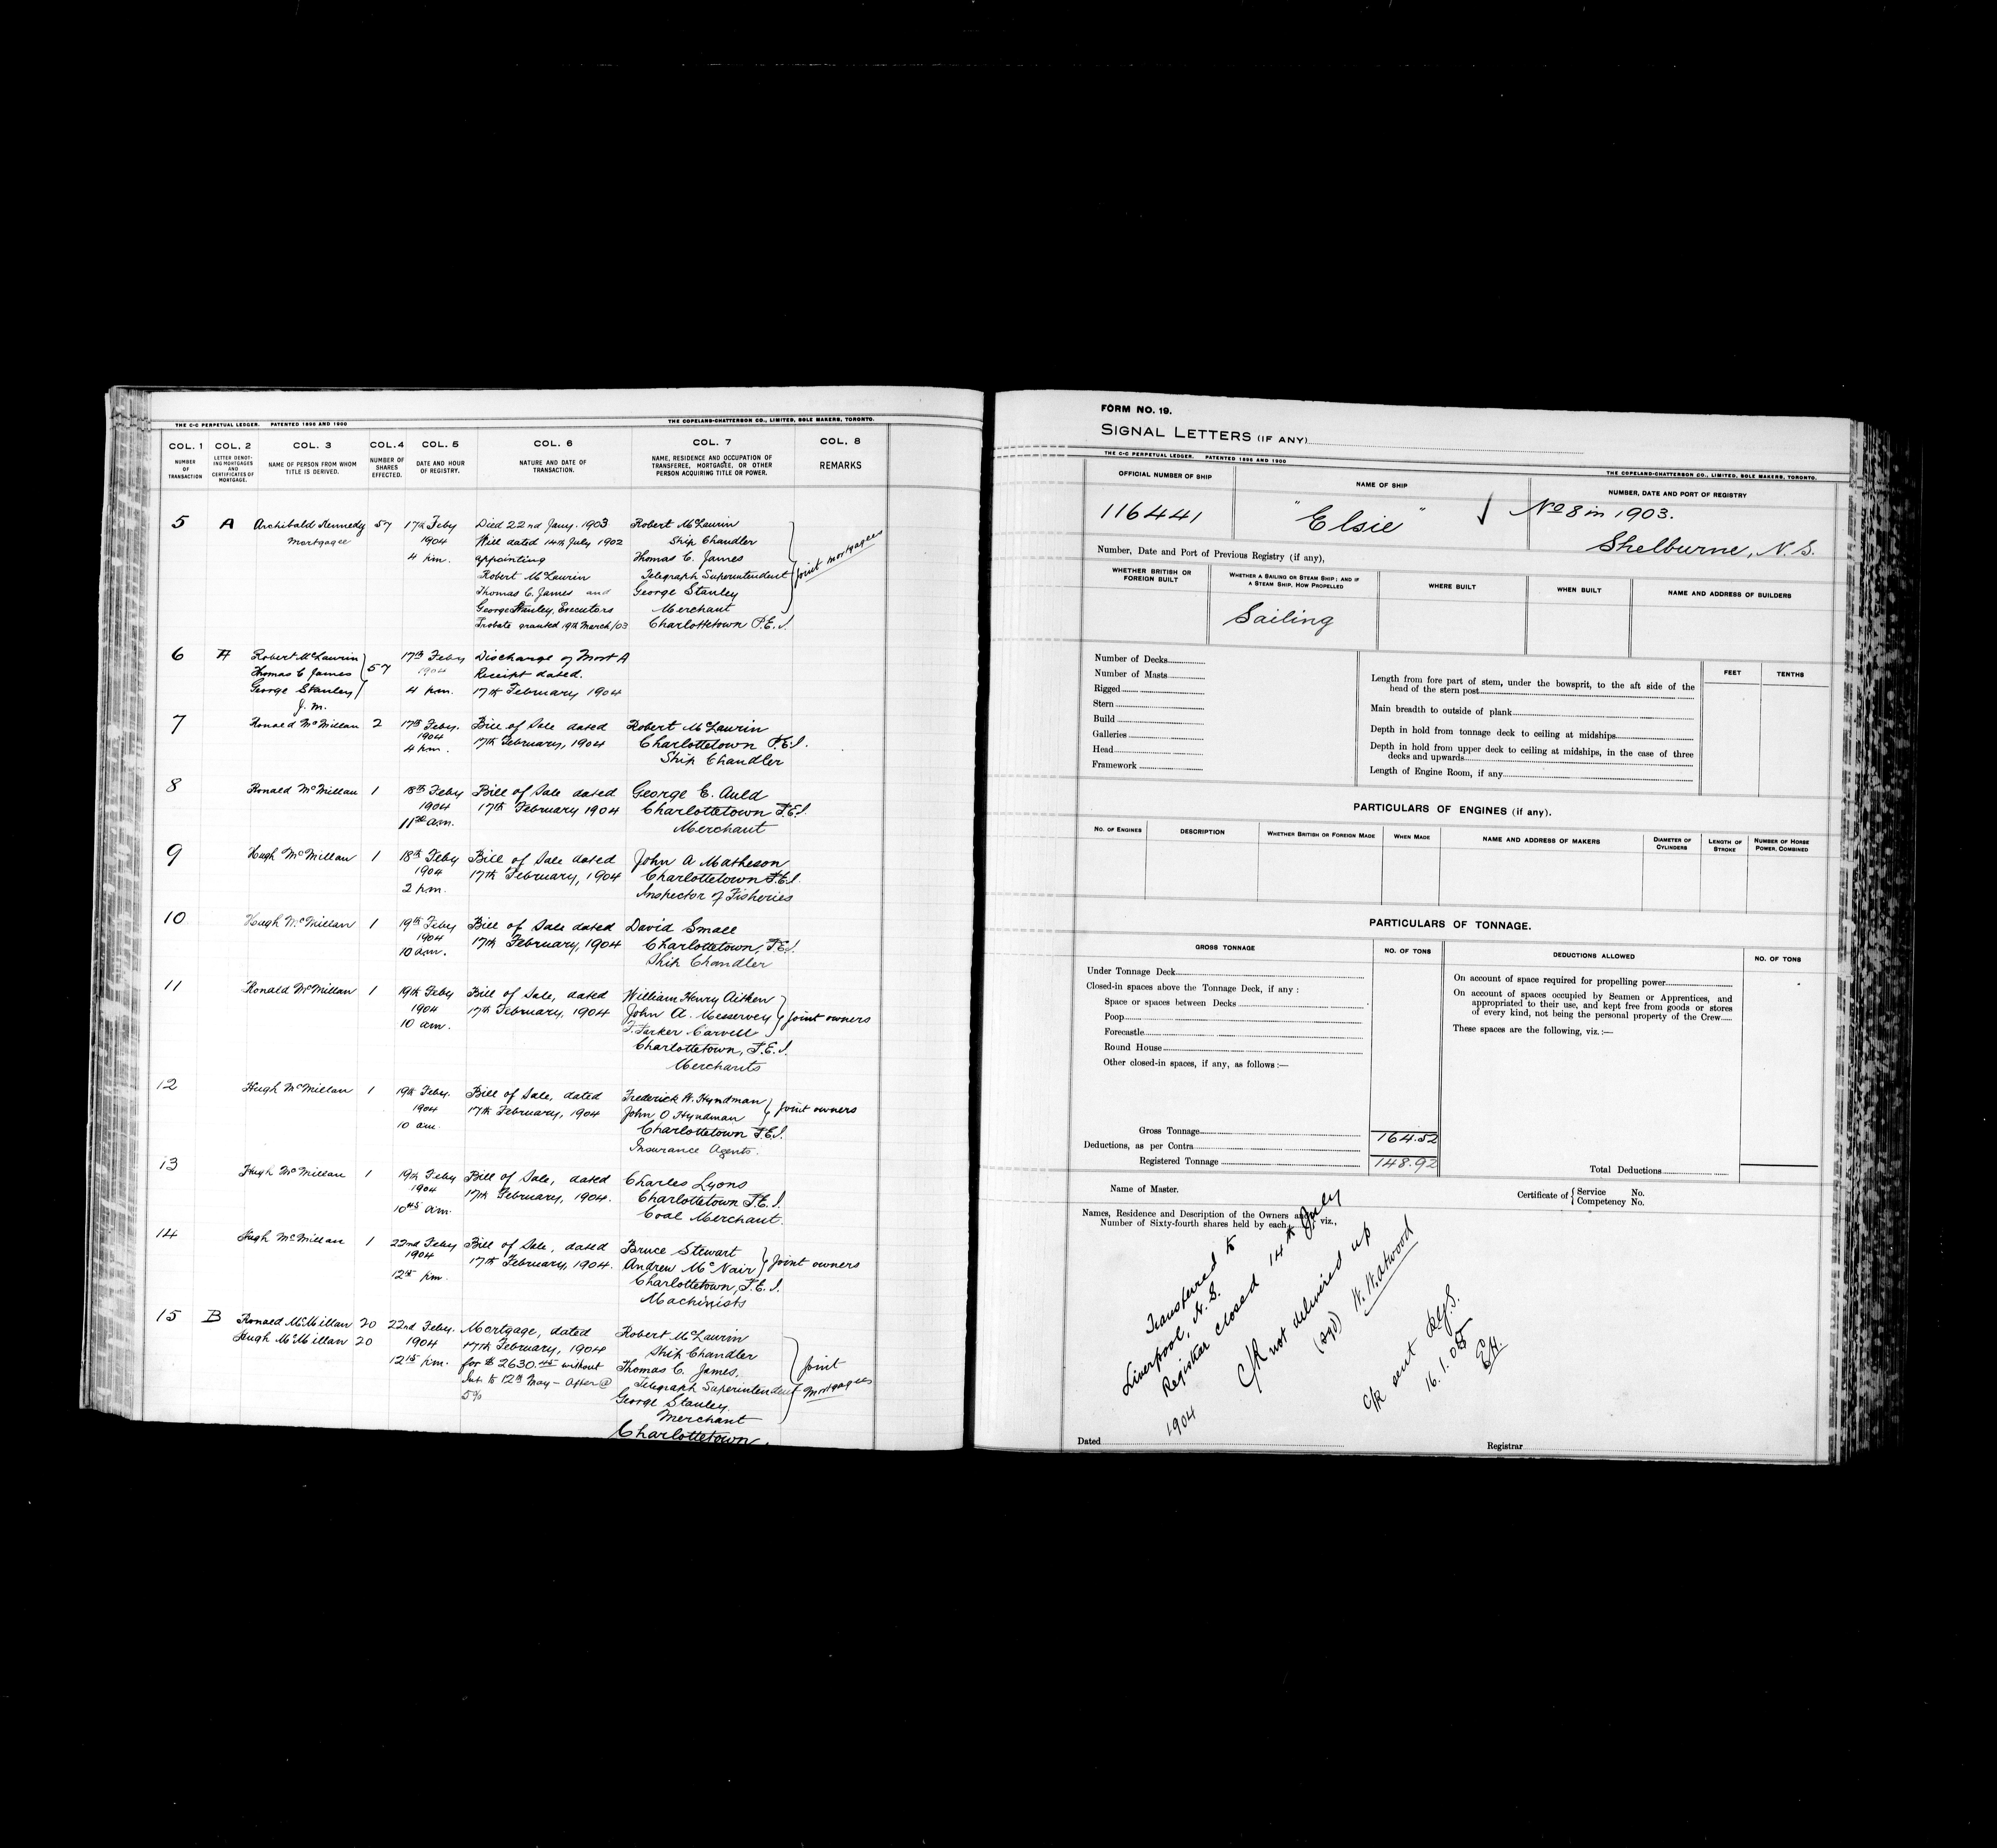 THE C-C PERPETUAL LEDGER. PATENTED 1896 AND 1900 THE COPELAND-CHATTERSON CO., LIMITED, SOLE MAKERS, TORONTO.
COL. 1 COL. 2 COL. 3 COL. 4 COL. 5 COL. 6 COL. 7 COL. 8
NUMBER OF TRANSACTION
LETTER DENOTING MORTGAGES AND CERTIFICATES OF MORTGAGE.
NAME OF PERSON FROM WHOM TITLE IS DERIVED.
NUMBER OF SHARES EFFECTED.
DATE AND HOUR OF REGISTRY.
NATURE AND DATE OF TRANSACTION.
NAME, RESIDENCE AND OCCUPATION OF TRANSFEREE, MORTGAGEE, OR OTHER PERSON ACQUIRING TITLE OR POWER.
REMARKS
5 A Archibald Kennedy 57 17th Feby Died 22nd Jany. 1903 Robert McLaurin
Mortgagee 1904 Will dated 14th July 1902 Ship Chandler
4 pm. appointing Thomas C. James
Robert McLaurin Telegraph Superintendent
Thomas C. James and George Stanley
George Stanley, Executors Merchant
Probate granted 19th March/03 Charlottetown P.E.I.
Joint Mortgagees
6 A Robert McLaurin 57 17th Feby Discharge of Mort A
Thomas C James 1904 Receipt dated.
George Stanley 4 pm. 17th February 1904
J. M.
7 Ronald McMillan 2 17th Feby. Bill of Sale dated Robert McLaurin
1904 17th February, 1904 Charlottetown P.E.I.
4 pm. Ship Chandler
8 Ronald McMillan 1 18th Feby Bill of Sale dated George E. Auld
1904 17th February 1904 Charlottetown P.E.I.
11 30 am. Merchant
9 Hugh McMillan 1 18th Feby Bill of Sale dated John A Matheson
1904 17th February, 1904 Charlottetown P.E.I.
2 pm. Inspector of Fisheries
10 Hugh McMillan 1 19th Feby Bill of Sale dated David Small
1904 17th February, 1904 Charlottetown, P.E.I.
10 am. Ship Chandler
11 Ronald McMillan 1 19th Feby Bill of Sale, dated William Henry Aitken
1904 17th February, 1904 John A. Messervey Joint owners
10 am. F. Parker Carvell
Charlottetown, P.E.I.
Merchants
12 Hugh McMillan 1 19th Feby. Bill of Sale, dated Frederick W. Hyndman
1904 17th February, 1904 John O Hyndman Joint owners
10 am. Charlottetown P.E.I.
Insurance Agents.
13 Hugh McMillan 1 19th Feby Bill of Sale, dated Charles Lyons
1904 17th February, 1904. Charlottetown P.E.I.
10 45 am. Coal Merchant.
14 Hugh McMillan 1 22nd Feby Bill of Sale, dated Bruce Stewart
1904 17th February, 1904. Andrew McNair Joint owners
pm. Charlottetown, P.E.I.
Machinists
15 B Ronald McMillan 20 22nd Feby. Mortgage, dated Robert McLaurin
Hugh McMillan 20 1904 17th February, 1904 Ship Chandler
12 15 pm. for $2630.45 without Thomas C. James,
Int. to 12th May - After @ Telegraph Superintendent
5% George Stanley.
Merchant
Charlottetown.
Joint Mortgagees
FORM NO. 19.
SIGNAL LETTERS (IF ANY)
THE C-C PERPETUAL LEDGER. PATENTED 1896 AND 1900 THE COPELAND-CHATTERSON CO., LIMITED, SOLE MAKERS, TORONTO.
OFFICIAL NUMBER OF SHIP NAME OF SHIP NUMBER, DATE AND PORT OF REGISTRY
116441 "Elsie" ✓ No 8 in 1903.
Shelburne, N.S.
Number, Date and Port of Previous Registry (if any),
WHETHER BRITISH OR FOREIGN BUILT
WHETHER A SAILING OR STEAM SHIP; AND IF A STEAM SHIP, HOW PROPELLED
WHERE BUILT WHEN BUILT NAME AND ADDRESS OF BUILDERS
Sailing
Number of Decks
Number of Masts
Rigged
Stern
Build
Galleries
Head
Framework
FEET TENTHS
Length from fore part of stem, under the bowsprit, to the aft side of the
head of the stern post
Main breadth to outside of plank
Depth in hold from tonnage deck to ceiling at midships
Depth in hold from upper deck to ceiling at midships, in the case of three
decks and upwards
Length of Engine Room, if any
PARTICULARS OF ENGINES (if any).
NO. OF ENGINES DESCRIPTION WHETHER BRITISH OR FOREIGN MADE WHEN MADE NAME AND ADDRESS OF MAKERS DIAMETER OF CYLINDERS LENGTH OF STROKE NUMBER OF HORSE POWER, COMBINED
PARTICULARS OF TONNAGE.
GROSS TONNAGE NO. OF TONS DEDUCTIONS ALLOWED NO. OF TONS
Under Tonnage Deck
Closed-in spaces above the Tonnage Deck, if any :
Space or spaces between Decks
Poop
Forecastle
Round House
Other closed-in spaces, if any, as follows :—
Gross Tonnage 164.52
Deductions, as per Contra
Registered Tonnage 148.92
On account of space required for propelling power
On account of spaces occupied by Seamen or Apprentices, and
appropriated to their use, and kept free from goods or stores
of every kind, not being the personal property of the Crew
These spaces are the following, viz. :—
Total Deductions
Name of Master.
Certificate of { Service No.
Competency No.
Names, Residence and Description of the Owners and
Number of Sixty-fourth shares held by each, viz.,
Transferred to
Liverpool, N.S.
Register closed 14th July
1904
C/R not delivered up
(sgd) W. W. Atwood
C/R sent
16.1.05
E.H.
Dated
Registrar